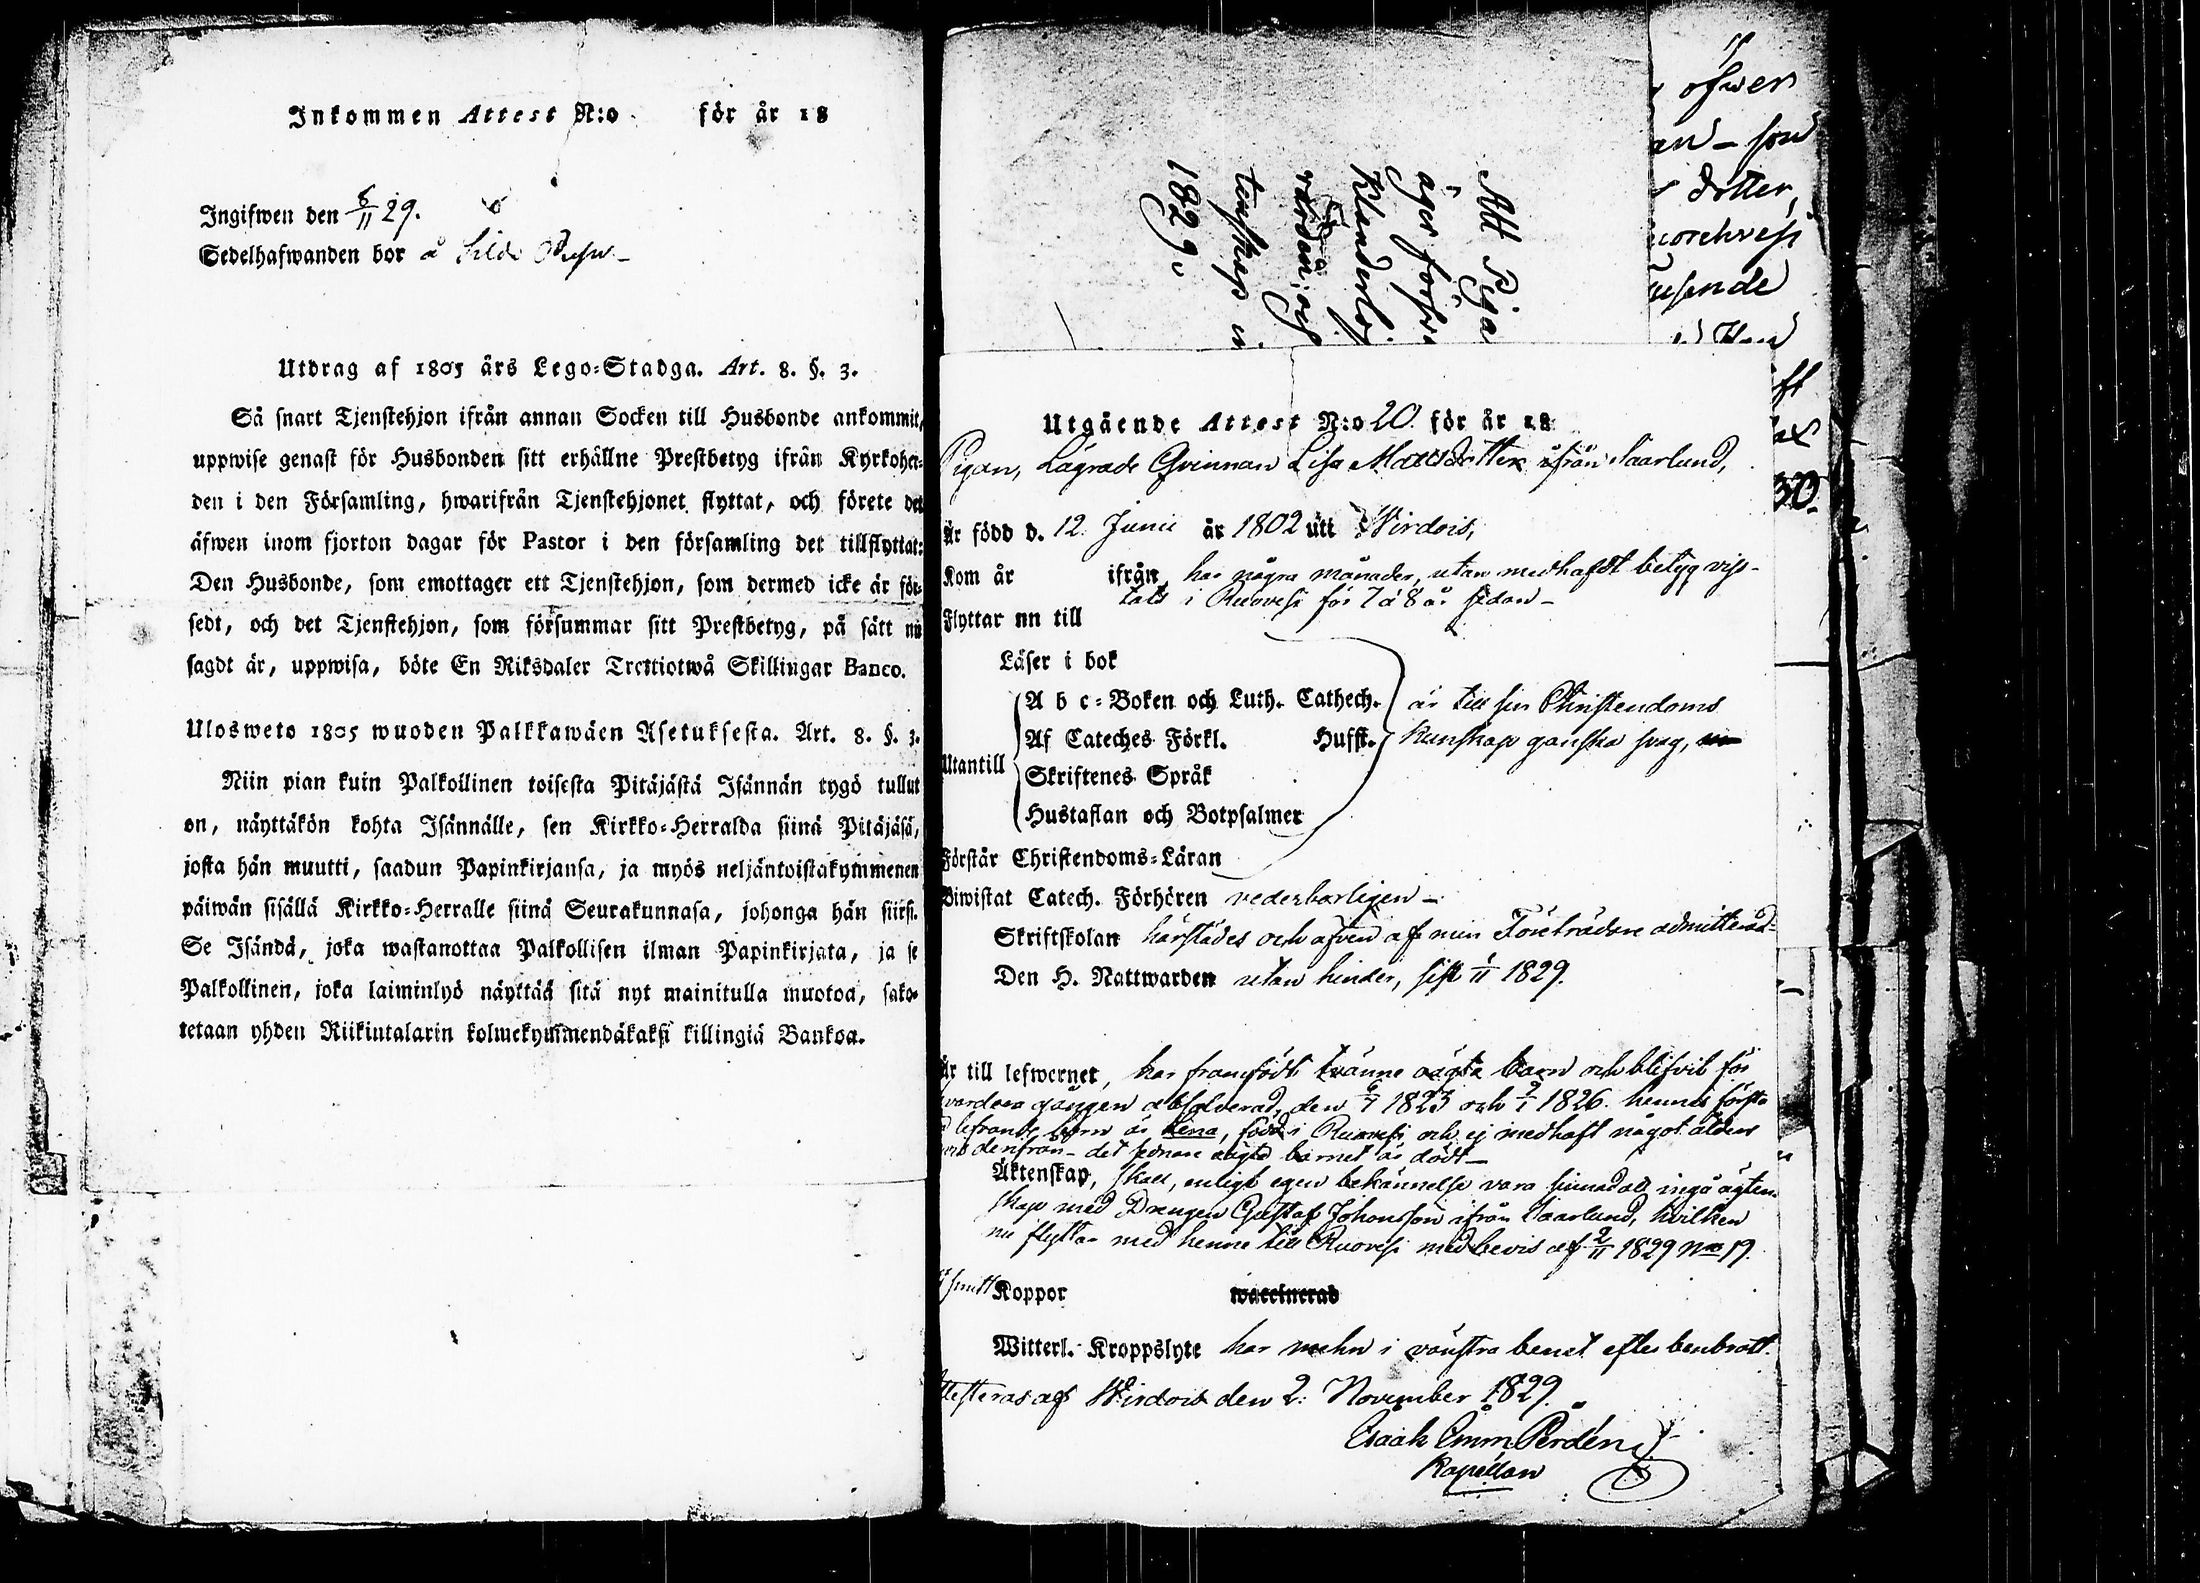 Inkommen Attest N:o för år 18
Ingifwen den 8/11 29.
Sedelhafwanden bor å
Utdrag af 1805 års Lego-Stadga. Art. 8. §. 3.
Så snart Tjenstehjon ifrån annan Socken till Husbonde ankommit,
uppwise genast för Husbonden sitt erhållne Prestbetyg ifrån Kyrkoher-
den i den Församling, hwarifrån Tjenstehjonet flyttat, och förete det
äfwen inom fjorton dagar för Pastor i den församling det tillflyttat:
Den Husbonde, som emottager ett Tjenstehjon, som dermed icke är för-
sedt, och det Tjenstehjon, som försummar sitt Prestbetyg, på sätt nu
sagdt är, uppwisa, böte En Riksdaler Trettiotwå Skillingar Banco.
Ulosweto 1805 wuoden Palkkawäen Asetuksesta. Art. 8. §. 3.
Niin pian kuin Palkollinen toisesta Pitäjästä Isännän tygö tullut
on, näyttäkön kohta Isännälle, sen Kirkko-Herralda siinä Pitäjäsä,
josta hän muutti, saadun Papinkirjansa, ja myös neljäntoistakymmenen
päiwän sisällä Kirkko-Herralle siinä Seurakunnasa, johonga hän siirsi.
Se Isändä, joka wastanottaa Palkollisen ilman Papinkirjata, ja se
Palkollinen, joka laiminlyö näyttää sitä nyt mainitulla muotoa, sako-
tetaan yhden Riikintalarin kolmekymmendäkaksi killingiä Bankoa.
Att Piga
äger förfr
Klanderlö
tenskap i
1829.
öfwer
dotter,
Utgående Attest N:o 20 för år 18
Pigan, Lägrade Qvinnan Lisa Mattsdotter ifrån Saarlund,
Är född d. 12 Junii år 1802 uti Wirdois,
Kom år ifrån, har några månader, utan medhafdt betyg vis-
tats i Ruovesi för 7 à 8 år sedan -
Flyttar nu till
Läser i bok
A b c-Boken och Luth. Cathech. är till sin Christendoms
Af Cateches Förkl. Hufst. kunskap ganska svag,
Utantill
Skriftenes Språk
Hustaflan och Botpsalmer
Förstår Christendoms-Läran
Biwistat Catech. Förhören vederbörligen -
Skriftskolan härstädes och äfven af min Företrädare admitterad -
Den H. Nattwarden utan hinder, sist 1/11 1829.
Är till lefwernet, har framfödt tvänne oägta barn och blifvit för
hvardera gången absolverad, den 6/7 1823 och 2/1 1826. hennes första
lefvande barn är Lena, född i Ruovesi och ej medhaft något
denfrån - det sednare oägta barnet är dödt -
Äktenskap, skall, enligt egen bekännelse vara sinnad att ingå ägten-
skap med Drengen Gustaf Johansson ifrån Saarlund, hvilken
nu flyttar med henne till Ruovesi med bevis af 2/11 1829 No 19.
Koppor waccinerad
Witterl. Kroppslyte har mehn i vänstra benet efter benbrott.
Attesteras af Wirdois den 2: November 1829.
Esaak Emm. Perdén
Kapellan